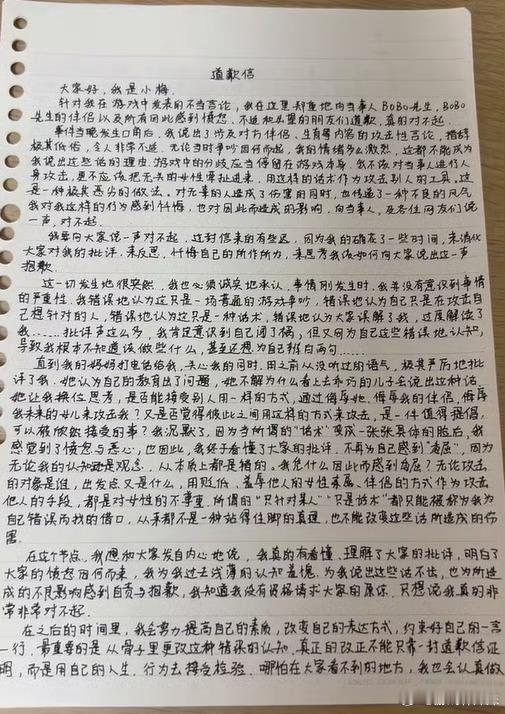 道歉信
大家好，我是小梅.
针对我在游戏中发表的不当言论，我在这里郑重地向当事人BOBO先生，BOBO
先生的伴侣以及所有因此感到愤怒、不适和失望的朋友们道歉，真的对不起.
事件当晚发生口角后，我说出了涉及对方伴侣、生育等内容的攻击性言论，措辞
极其低俗，令人非常不适，无论当时争吵因何而起，我的情绪多么激烈，这都不能成为
我说出这些话的理由，游戏中的分歧应当停留在游戏本身，我不该对当事人进行人
身攻击，更不应该把无关的女性牵扯进来，用这样的话术作为攻击别人的工具。这
是一种极其恶劣的做法。对无辜的人造成了伤害的同时，也传递了一种不良的风气
我对我这样的行为感到忏悔，也对因此而造成的影响，向当事人，及各位网友们说
一声，对不起.
我要向大家说一声对不起，这封信来的有些迟，因为我的确花了一些时间，来消化
大家对我的批评，来反思，忏悔自己的所作所为，来思考我该如何向大家说出这一声
抱歉.
这一切发生地很突然，我也必须诚实地承认，事情刚发生时，我并没有意识到事情
的严重性，我错误地认为这只是一场普通的游戏争吵，错误地认为自己只是在攻击自
己想针对的人，错误地认为这只是一种话术，错误地认为大家误解了我，过度解读了
我……批评声这么多，我肯定意识到自己闯了祸，但又因为自己这些错误地认知，
导致我根本不知道该做些什么，甚至还想为自己辩白两句……
直到我的妈妈打电话给我，关心我的同时，用之前从没听过的语气，极其严厉地批
评了我，她认为自己的教育出了问题，她不解为什么看上去乖巧的儿子会说出这种话，
她让我换位思考，是否能接受别人用一样的方式，通过侮辱她、侮辱我的伴侣，侮辱
我未来的女儿来攻击我？又是否觉得彼此之间用这样的方式来攻击，是一件值得提倡，
可以被欣然接受的事？我沉默了，因为当所谓的“话术”变成一张张具体的脸后，我
感觉到了愤怒与恶心，也因此，我终于看懂了大家的批评，不再为自己感到“委屈”，因为
无论我的认知还是观念，从本质上都是错的，我凭什么因此而感到委屈？无论攻击
的对象是谁，出发点又是什么，用贬低、羞辱他人的女性家属、伴侣的方式作为攻击
他人的手段，都是对女性的不尊重，所谓的“只针对某人”“只是话术”都只能被称为我为
自己错误而找的借口，从来都不是一种站得住脚的真理，也不能改变这些话所造成的伤
害.
在这个节点，我想和大家发自内心地说，我真的有看懂、理解了大家的批评，明白了
大家的愤怒因何而来，我为我过去浅薄的认知羞愧，为我说出这些话不齿，也为所造
成的不良影响感到自责与抱歉，我知道我没有资格请求大家的原谅，只想说我真的非
常非常对不起.
在之后的时间里，我会努力提高自己的素质，改变自己的表达方式，约束好自己的一言
一行，最重要的是从骨子里更改这种错误的认知，真正的改正不能只靠一封道歉信证
明，而是用自己的人生、行为去接受检验，哪怕在大家看不到的地方，我也会认真做